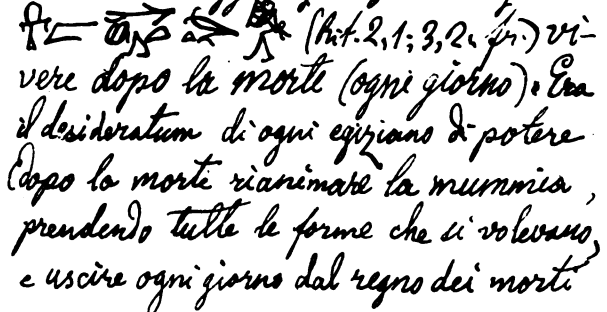 (Rit. 2,1; 3,2. fr.) vi-
vere dopo la morte (ogni giorno). Era
il desideratum di ogni egiziano di potere
(dopo la morte rianimare la mummia,
prendendo tutte le forme che si volevano,
e uscire ogni giorno dal regno dei morti